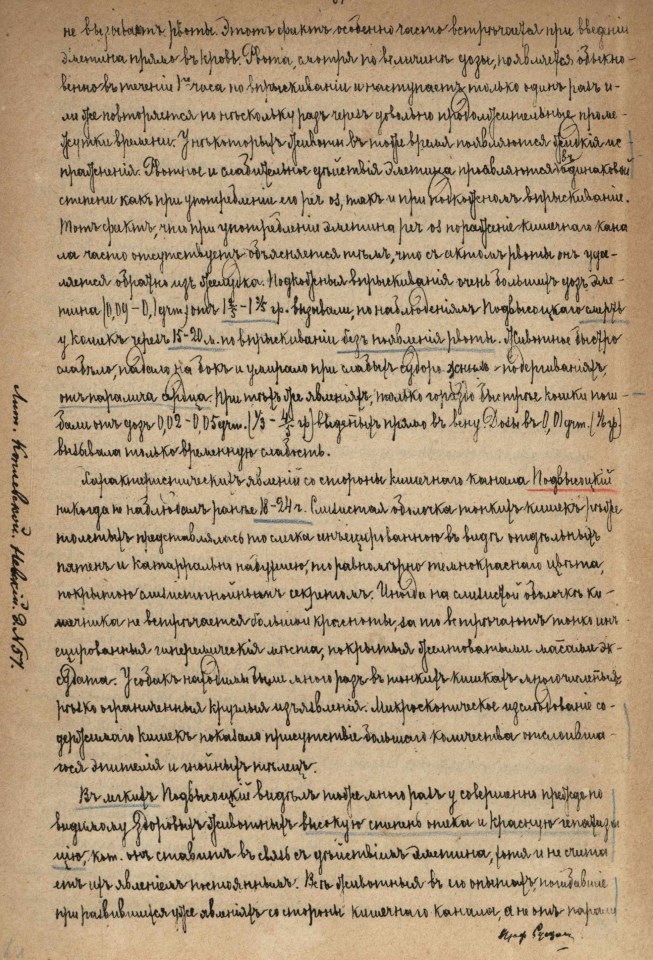 не вызываетъ рвоты. Этотъ фактъ особенно часто встрѣчается при введеніи
эметина прямо въ кровь. Рвота, смотря по величинѣ дозы, появляется обыкно-
венно въ теченіи 1го часа по впрыскиваніи и наступаетъ только одинъ разъ и-
ли же повторяется по нѣскольку разъ черезъ довольно продолжительные проме-
жутки времени. У нѣкоторыхъ животн въ тоже время появляются жидкія ис
пражненія. Рвотное и слабительное дѣйствія эметина проявляются въ одинаковой
степени какъ при употребленіи его per os, такъ и при подкожномъ впрыскиваніе.
Тотъ фактъ, что при употребленіи эметина per os пораженіе кишечнаго кана
ла часто отсутствуетъ объясняется тѣмъ, что съ актомъ рвоты онъ уда-
ляется обратно изъ желудка. Подкожныя впрыскиванія очень большихъ дозъ эме-
тина (0,09 – 0,1 grm.) отъ 1 2/5 – 1 3/5 гр. вызывали, по наблюденіямъ Подвысоцкаго смерть
у кошекъ черезъ 15-20 м. по впрыскиваніи безъ появленія рвоты. Животное быстро
слабѣло, падало на бокъ и умирало при слабыхъ судоро. жныхъ подергиваніяхъ,
отъ паралича сердца. При тѣхъ же явленіяхъ, только гораздо быстрѣе кошки поги
бали отъ дозъ 0,02 – 0,05 grm. (1/3 – 4/5 гр) введеныхъ прямо въ вену. Дозы въ 0,01 grm. (1/6 гр)
вызывала только временную слабость.
Характеристическихъ явленій со стороны кишечнаго канала Подвысоцкій
никогда не наблюдалъ ранѣе 18-24 г. Слизистая оболочка тонкихъ кишекъ рѣже
толстыхъ представлялась то слегка инъецированною въ видѣ отдѣльныхъ
пятенъ и катаррально набухшею, то равномѣрно темнокраснаго цвѣта,
покрытою слизистогнойнымъ секретомъ. Иногда на слизистой оболочкѣ ки-
шечника не встрѣчается большой красноты, за то встрѣчаютъ тонко инъ-
ецированныя гиперемическія мѣста, покрытыя желтоватыми массами эк-
судата. У собакъ находимы были много разъ въ тонкихъ кишкахъ многочисленныя
рѣзко ограниченныя круглыя изъязвленія. Микроскопическое изслѣдованіе со-
держимаго кишекъ показало присутствіе большого количества отслоивша-
гося эпителія и гнойныхъ тѣлецъ.
Въ легкихъ Подвысоцкій видѣлъ тоже много разъ у совершенно прежде по
видимому здоровыхъ животныхъ высокую степень отека и красную гепатиза
цію, кот. онъ ставитъ въ связь съ дѣйствіемъ эметина, хотя и не счита
етъ ихъ явленіемъ постояннымъ. Всѣ животныя въ его опытахъ, погибавшіе
при развившихся уже явленіяхъ со стороны кишечнаго канала, а не отъ парали
Лит. Невскій. д. № 51.